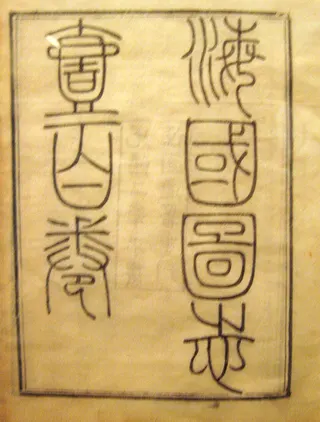 海國圖志
壹百卷